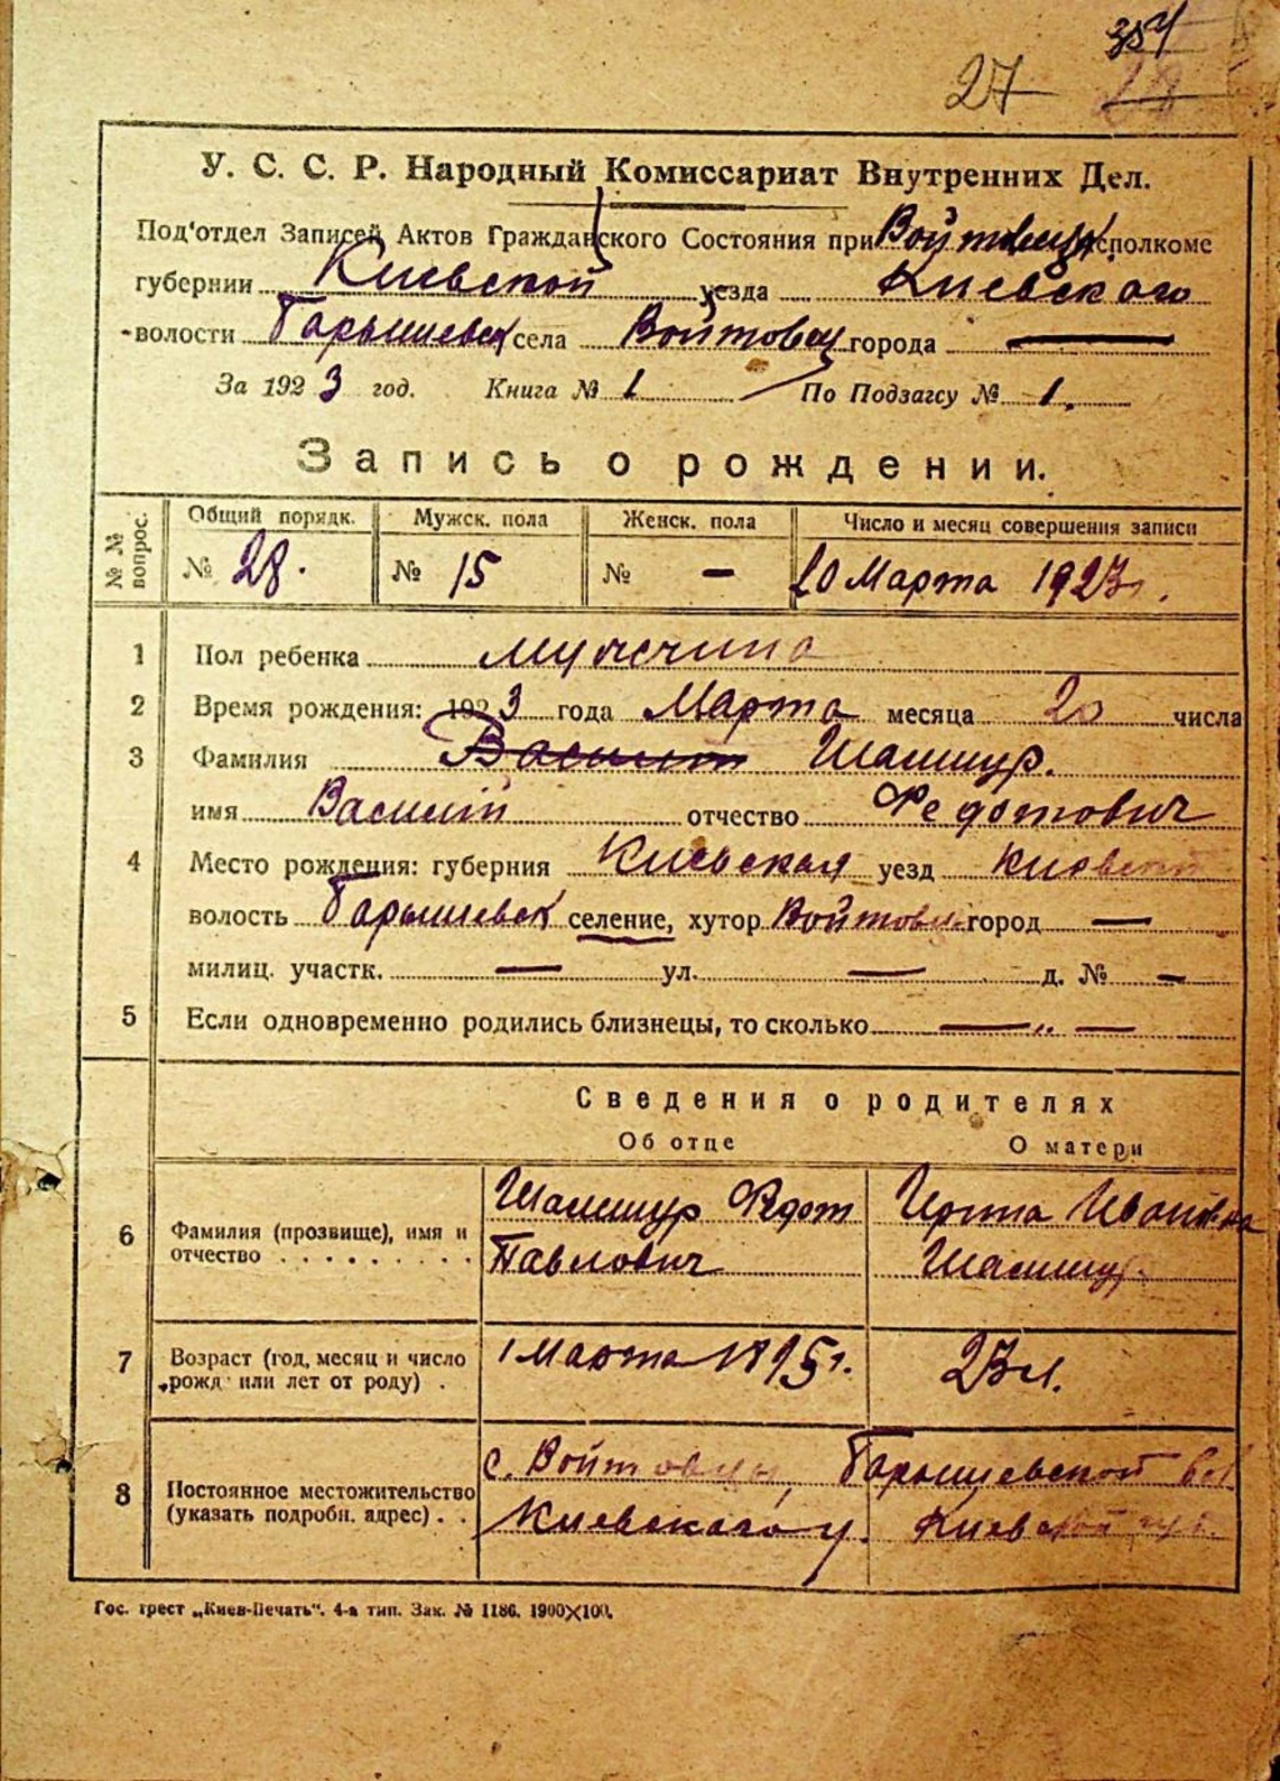 354
27 28
У. С. С. Р. Народный Комиссариат Внутренних Дел.
Под'отдел Записей Актов Гражданского Состояния при Войтовец. исполкоме
губернии Киевской уезда Киевского
волости Барышевск села Войтовец города —
За 1923 год. Книга № 1 По Подзагсу № 1.
Запись о рождении.
№ № вопрос. Общий порядк. Мужск. пола Женск. пола Число и месяц совершения записи
№ 28. № 15 № — 20 Марта 1923 г.
1 Пол ребенка мужчина
2 Время рождения: 1923 года Марта месяца 20 числа
3 Фамилия Шамшур.
имя Василий отчество Федотович
4 Место рождения: губерния Киевская уезд Киевский
волость Барышевск селение, хутор Войтовцы город —
милиц. участк. — ул. — д. № —
5 Если одновременно родились близнецы, то сколько — „ —
Сведения о родителях
Об отце О матери
6 Фамилия (прозвище), имя и отчество . . . . . . . . .
Шамшур Федот
Павлович
Ирина Ивановна
Шамшур.
7 Возраст (год, месяц и число рожд. или лет от роду) .
1 Марта 1895 г.
23 л.
8 Постоянное местожительство (указать подробн. адрес) . .
с. Войтовцы, Барышевской вол.
Киевского у. Киевской губ.
Гос. трест „Киев-Печать". 4-а тип. Зак. № 1186. 1900×100.